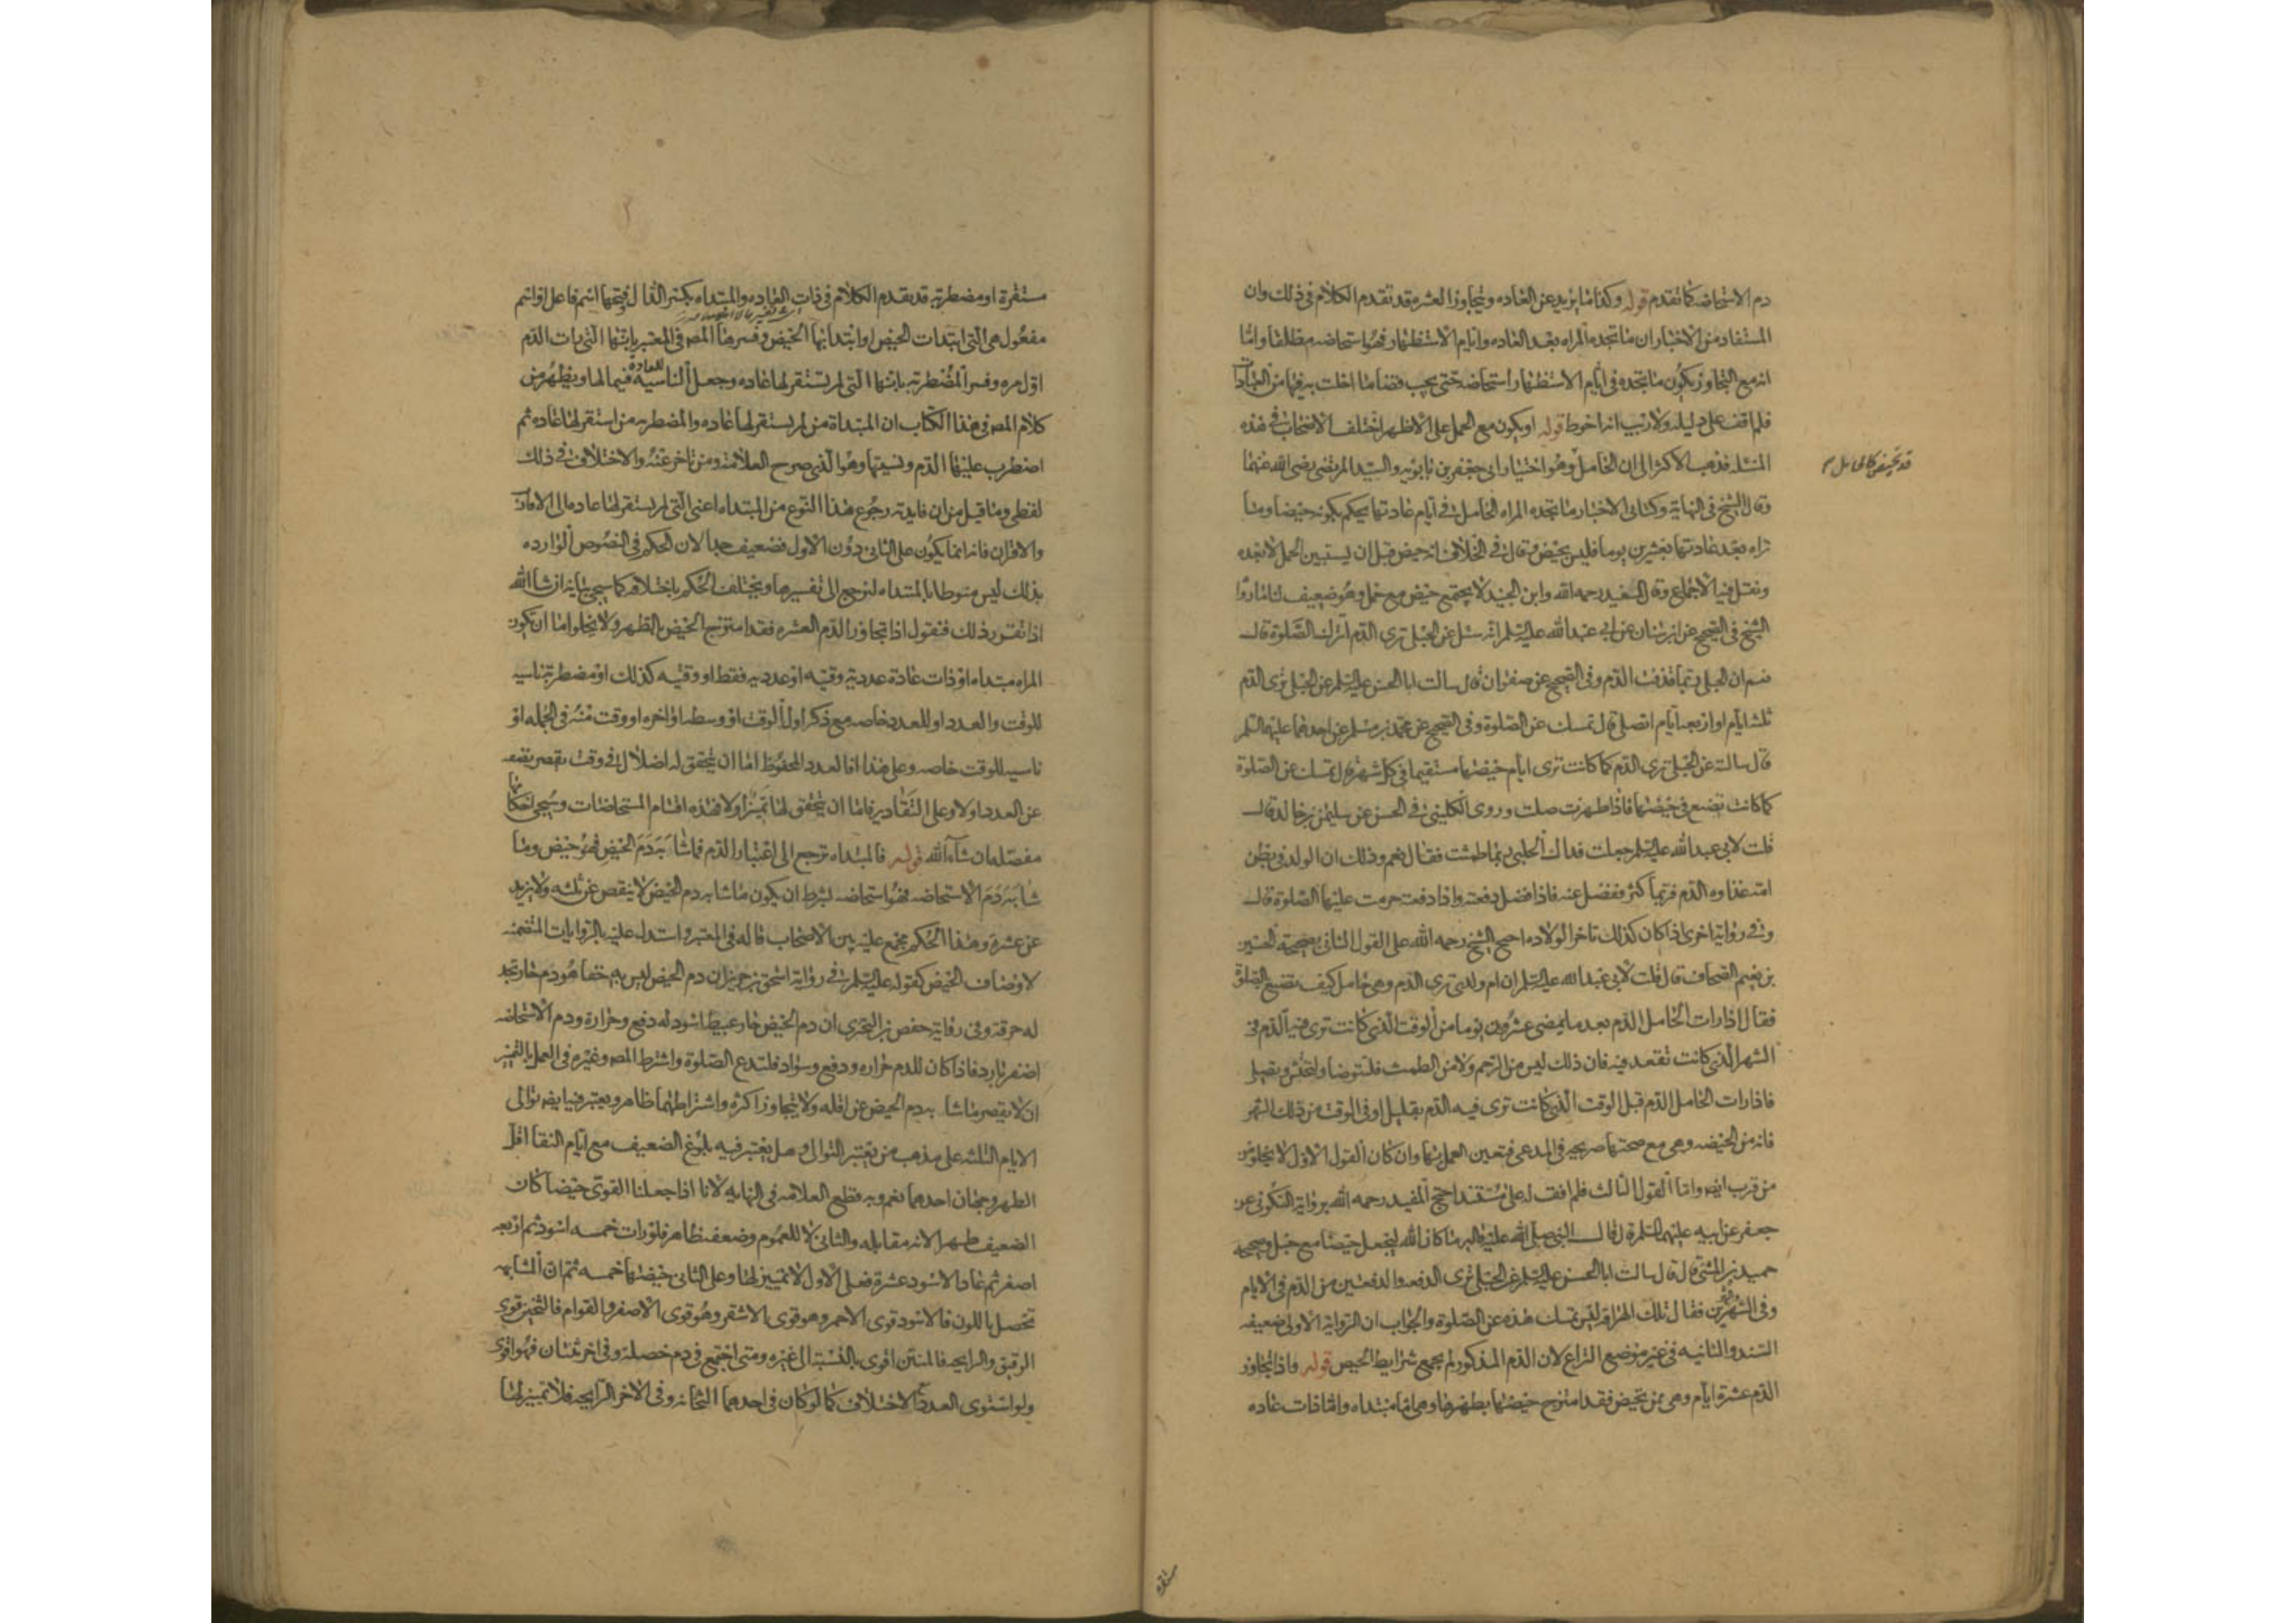 دم الاستحاضه كما تقدم قوله وكذا ما يزيد عن العاده ويتجاوز العشره قد تقدم الكلام فى ذلك وان
المستفاد من الاخبار ان ما تجده المراه بعد العاده وايام الاستظهار فهو استحاضه مطلقا واما
انه مع التجاوز يكون ما تجده فى ايام الاستظهار استحاضه حتى يجب قضا ما اخلت به فيها من العبادات
فلم اقف على دليله ولا ريب انه احوط قوله او يكون مع الحمل على الاظهر اختلف الاصحاب فى هذه
المسئله فذهب الاكثر الى ان الحامل وهو اختيار ابى جعفر بن بابويه والسيد المرتضى رضى الله عنهما
قد تحيض كالحايل
وقال الشيخ فى النهاية وكتابى الاخبار ما تجده المراه الحامل فى ايام عادتها يحكم بكونه حيضا وما
تراه بعد عادتها بعشرين يوما فليس بحيض وقال فى الخلاف انه حيض قبل ان يستبين الحمل لا بعده
ونقل فيه الاجماع وقال المفيد رحمه الله وابن الجنيد لا يجتمع حيض مع حمل وهو ضعيف لنا ما رواه
الشيخ فى الصحيح عن ابن سنان عن ابى عبد الله عليه السلم انه سئل عن الحبلى ترى الدم اتترك الصلوة قال
نعم ان الحبلى ربما قذفت الدم وفى الصحيح عن صفوان قال سالت ابا الحسن عليه السلم عن الحبلى ترى الدم
ثلثه ايام او اربعه ايام اتصلى قال تمسك عن الصلوة وفى الصحيح عن محمد بن مسلم عن احدهما عليهما السلم
قال سالته عن الحبلى ترى الدم كما كانت ترى ايام حيضها مستقيما فى كل شهر قال تمسك عن الصلوة
كما كانت تصنع فى حيضها فاذا طهرت صلت وروى الكلينى فى الحسن عن سليمن بن خالد قال
قلت لابى عبد الله عليه السلم جعلت فداك الحبلى ربما طمثت فقال نعم وذلك ان الولد فى بطن
امه غذاوه الدم فربما كثر ففضل عنه فاذا فضل دفعته واذا دفعته حرمت عليها الصلوة قال
وفى رواية اخرى اذا كان كذلك تاخر الولاده احتج الشيخ رحمه الله على القول الثانى بصحيحة الحسين
بن نعيم الصحاف قال قلت لابى عبد الله عليه السلم ان ام ولدى ترى الدم وهى حامل كيف تصنع بالصلوة
فقال اذا رات الحامل الدم بعد ما يمضى عشرون يوما من الوقت الذى كانت ترى فيه الدم فى
الشهر الذى كانت تقعد فيه فان ذلك ليس من الرحم ولا من الطمث فلتتوضا ولتحتش وتصلى
فاذا رات الحامل الدم قبل الوقت الذى كانت ترى فيه الدم بقليل او فى الوقت من ذلك الشهر
فانه من الحيضه وهى مع صحتها صريحه فى المدعى فتعين العمل بها وان كان القول الاول لا يخلو من
من قرب ايضا واما القول الثالث فلم اقف له على مستند احتج المفيد رحمه الله برواية السكونى عن
جعفر عن ابيه عليهما السلم قال قال النبى صلى الله عليه واله ما كان الله ليجعل حيضا مع حبل وصحيحه
حميد بن المثنى قال قال سالت ابا الحسن عليه السلم عن الحبلى ترى الدفعه والدفعتين من الدم فى الايام
وفى الشهر والشهرين فقال تلك الهراقه ليس تمسك هذه عن الصلوة والجواب ان الرواية الاولى ضعيفه
السند والثانيه فى غير موضع النزاع لان الدم المذكور لم يجمع شرايط الحيض قوله واذا تجاوز
الدم عشرة ايام وهى ممن تحيض فقد امتزج حيضها بطهرها وهى اما مبتداه واما ذات عاده
مستقره
مستقرة او مضطربه قد تقدم الكلام فى ذات العاده والمبتداه بكسر الدال وفتحها اسم فاعل او اسم
مفعول هى التى ابتدات الحيض او ابتدا بها الحيض وفسرها المص فى المعتبر بانها التى رات الدم
اول مره وفسر المضطربه بانها التى لم تستقر لها عاده وجعل الناسيه للعادة فيما لها ويظهر من
كلام المص فى هذا الكتاب ان المبتداة من لم يستقر لها عاده والمضطربه من استقر لها عاده ثم
اضطرب عليها الدم ونسيتها وهو الذى صرح العلامه ومن تاخر عنه والاختلاف فى ذلك
لفظى وما قيل من ان فايدته رجوع هذا النوع من المبتداه اعنى التى لم يستقر لها عاده الى الاقارب
والاقران فانه انما يكون على الثانى دون الاول فضعيف جدا لان الحكم فى النصوص الوارده
بذلك ليس منوطا بالمبتداه لنرجع الى تفسيرها ويختلف الحكم باختلافه كما سيجى بيانه ان شا الله
اذا تقرر ذلك فنقول اذا تجاوز الدم العشره فقد امتزج الحيض بالطهر ولا يخلوا اما ان تكون
المراه مبتداه او ذات عادة عددية وقتيه او عدديه فقط او وقتيه كذلك او مضطربة ناسيه
للوقت والعدد او للعدد خاصه مع ذكر اول الوقت او وسطه او اخره او وقت منه فى الجمله او
ناسيه للوقت خاصه وعلى هذا فالعدد المحفوظ اما ان يتحقق له اضلال فى وقت يقصر نصفه
عن العدد اولا وعلى التقادير فاما ان يتحقق لها تميز اولا فهذه اقسام المستحاضات وسيجى احكامها
مفصله ان شاء الله قوله فالمبتداه ترجع الى اعتبار الدم فما شابه دم الحيض فهو حيض وما
شابه دم الاستحاضه فهو استحاضه بشرط ان يكون ما شابه دم الحيض لا ينقص عن ثلثه ولا يزيد
عن عشرة وهذا الحكم مجمع عليه بين الاصحاب قاله فى المعتبر واستدل عليه بالروايات المتضمنه
لاوصاف الحيض كقوله عليه السلم فى رواية اسحق بن جرير ان دم الحيض ليس به خفا هو دم حار تجد
له حرقه وفى رواية حفص بن البخترى ان دم الحيض حار عبيط اسود له دفع وحرارة ودم الاستحاضه
اصفر بارد فاذا كان للدم حراره ودفع وسواد فلتدع الصلوة واشترط المص وغيره فى العمل بالتميز
ان لا يقصر ما شابه دم الحيض عن اقله ولا يتجاوز اكثره واشتراطهما ظاهر ويعتبر فيه ايضا توالى
الايام الثلثه على مذهب من يعتبر التوالى وهل يعتبر فيه بلوغ الضعيف مع ايام النقا اقل
الطهر وجهان احدهما نعم وبه قطع العلامه فى النهايه لانا اذا جعلنا القوى حيضا كان
الضعيف طهرا لانه مقابله والثانى لا للعموم وضعفه ظاهر فلو رات خمسه اسود ثم اربعه
اصفر ثم عاد الاسود عشرة فعلى الاول لا تمييز لها وعلى الثانى حيضها خمسه ثم ان المشابهه
تحصل باللون فالاسود قوى الاحمر وهو قوى الاشقر وهو قوى الاصفر والقوام فالثخين قوى
الرقيق والرايحه فالمنتن اقوى بالنسبة الى غيره ومتى اجتمع فى دم خصله وفى اخر ثنتان فهو اقوى
ولو استوى العدد مع الاختلاف كما لو كان فى احدهما الثخانه وفى الاخر الرايحه فلا تمييز لها